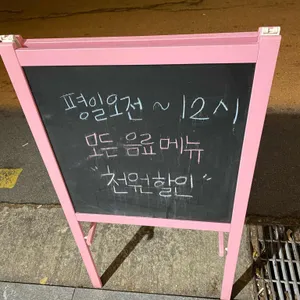 평일오전 ~ 12시
모든 음료 메뉴
"천원할인"